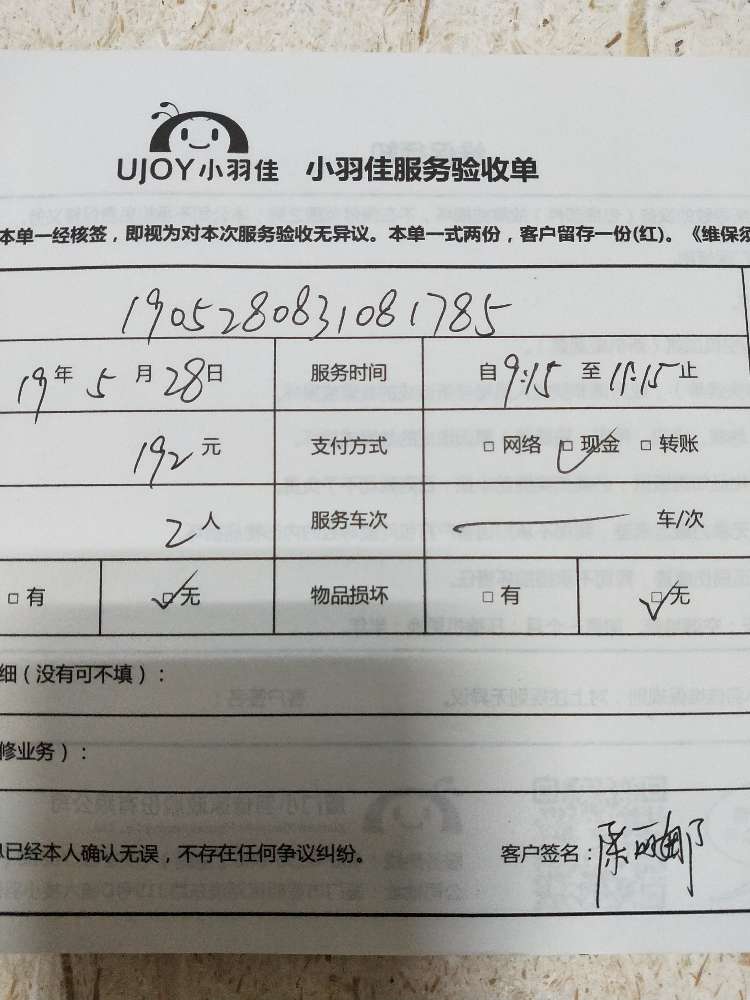 UJOY小羽佳 小羽佳服务验收单
本单一经核签，即视为对本次服务验收无异议。本单一式两份，客户留存一份(红)。《维保须
1905280831081785
19年5月28日 服务时间 自9:15至11:15止
192元 支付方式 □网络 □现金 □转账
2人 服务车次 车/次
□有 □无 物品损坏 □有 □无
细（没有可不填）：
修业务）：
已经本人确认无误，不存在任何争议纠纷。 客户签名：陈丽娜